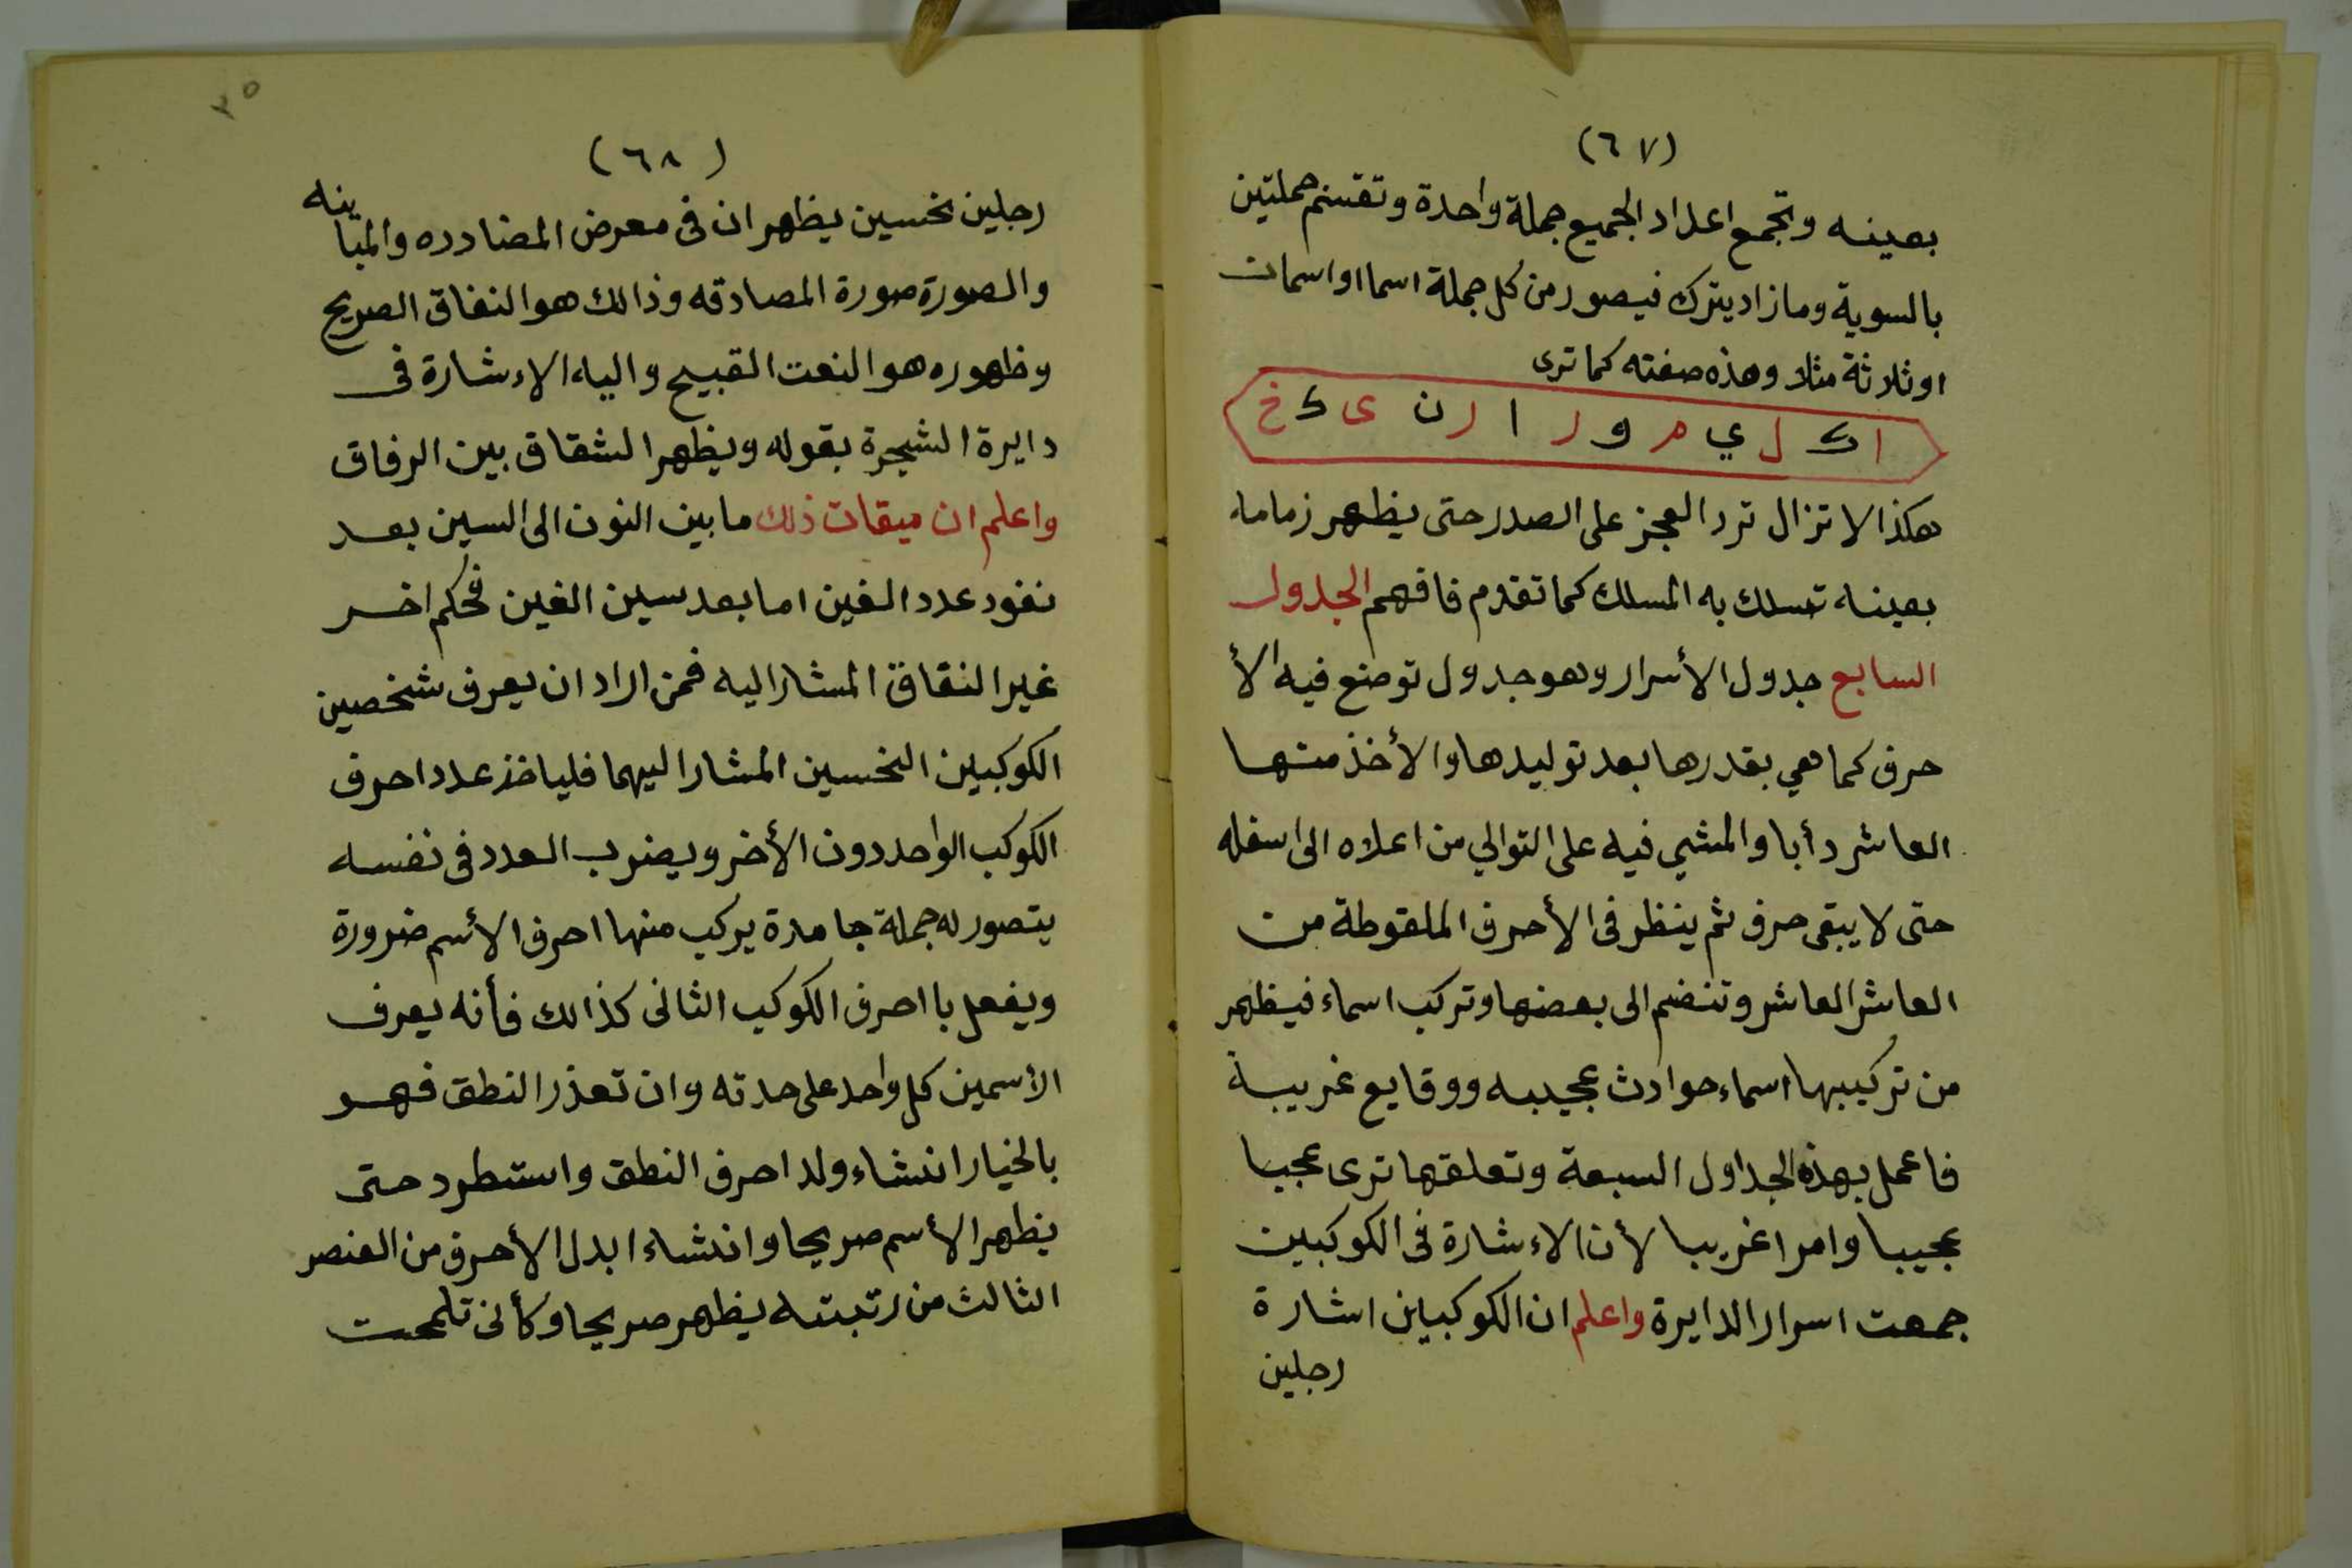 (٦٧)
بعينه وتجمع اعداد الجميع جملة واحدة وتقسم جملتين
بالسوية وما زاد يترك فيصور من كل جملة اسما او اسمان
او ثلاثة مثلا وهذه صفته كما ترى
ا ك ل ي م و ر ا ر ن ى ك خ
هكذا لا تزال ترد العجز على الصدر حتى يظهر زماما
بعينه تسلك به المسلك كما تقدم فافهم الجدول
السابع جدول الأسرار وهو جدول توضع فيه الأ
حرف كما هي بقدرها بعد توليدها والأخذ منها
العاشر دأبا والمشي فيه على التوالي من اعلاه الى اسفله
حتى لا يبقى حرف ثم ينظر فى الأحرف الملقوطة من
العاشر العاشر وتنضم الى بعضها وتركب اسماء فيظهر
من تركيبها اسماء حوادث عجيبه ووقايع غريبة
فاعمل بهذه الجداول السبعة وتعلقها ترى عجبا
عجيبا وامرا غريبا لأن الاءشارة فى الكوكبين
جمعت اسرار الدايرة واعلم ان الكوكبين اشارة
رجلين
٣٥
(٦٨)
رجلين نحسين يظهران فى معرض المضادره والمباينه
والصورة صورة المصادقه وذالك هو النفاق الصريح
وظهوره هو النعت القبيح واليه الاءشارة فى
دايرة الشجرة بقوله ويظهر الشقاق بين الرفاق
واعلم ان ميقات ذلك ما بين النون الى السين بعد
نفود عدد الغين اما بعد سين الغين فحكم اخر
غير النقاق المشار اليه فمن اراد ان يعرف شخصين
الكوكبين النحسين المشار اليهما فلياخذ عدد احرف
الكوكب الواحد دون الأخر ويضرب العدد فى نفسه
يتصور له جملة جامدة يركب منها احرف الأسم ضرورة
ويفعل با احرف الكوكب الثانى كذالك فأنه يعرف
الأسمين كل واحد على حدته وان تعذر النطق فهو
بالخيار انشاء ولد احرف النطق واستطرد حتى
يظهر الأسم صريحا وانشاء ابدل الأحرف من العنصر
الثالث من رتبته يظهر صريحا وكأنى تلمحت